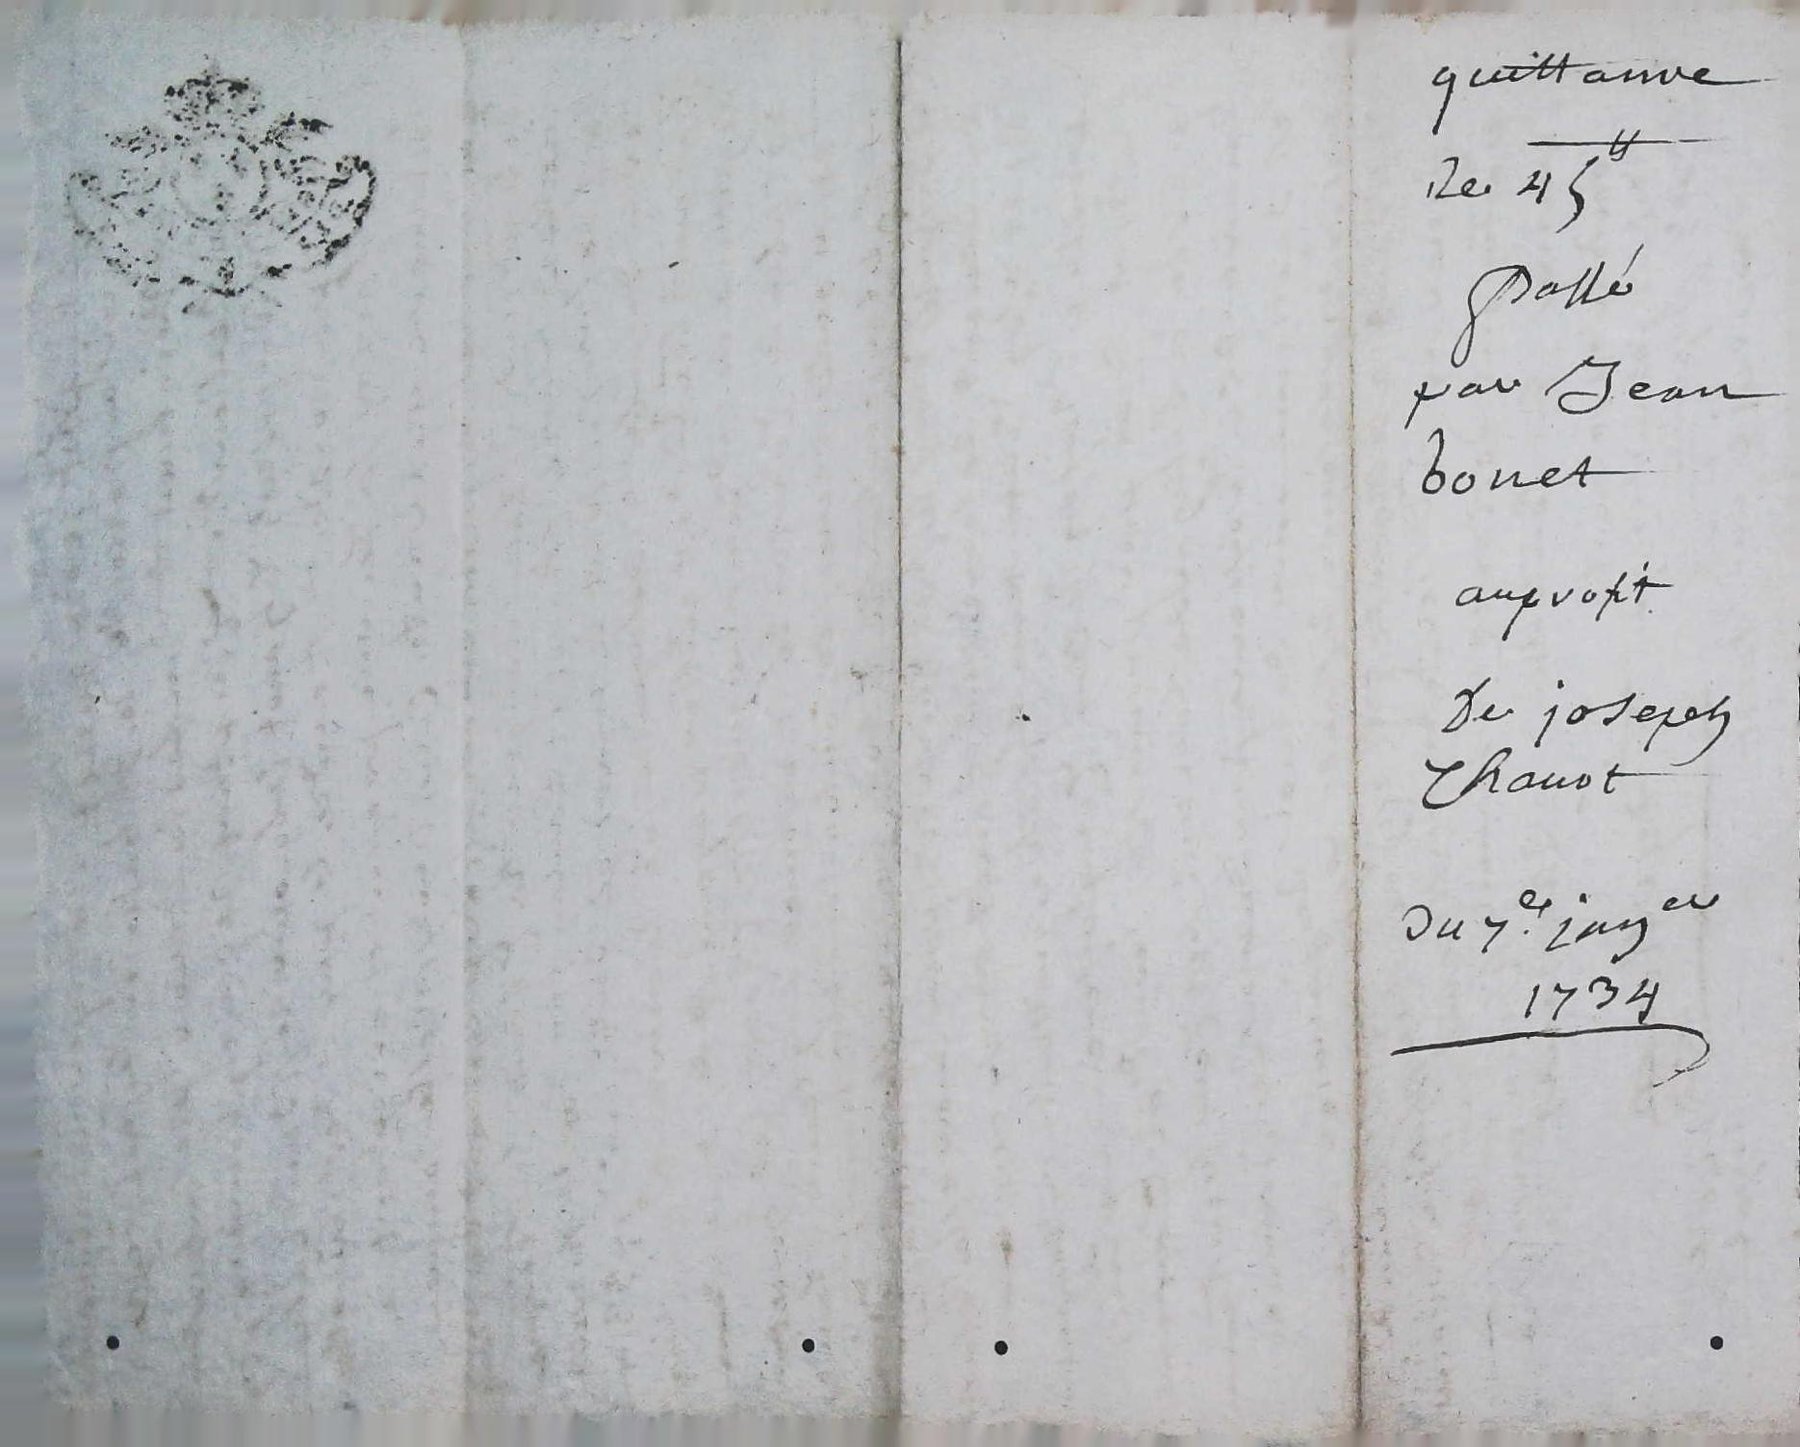 quittance
de 45 ₶
Passé
par Jean
bonet
auprofit
De joseph
Chauot
Du 7e janer
1734